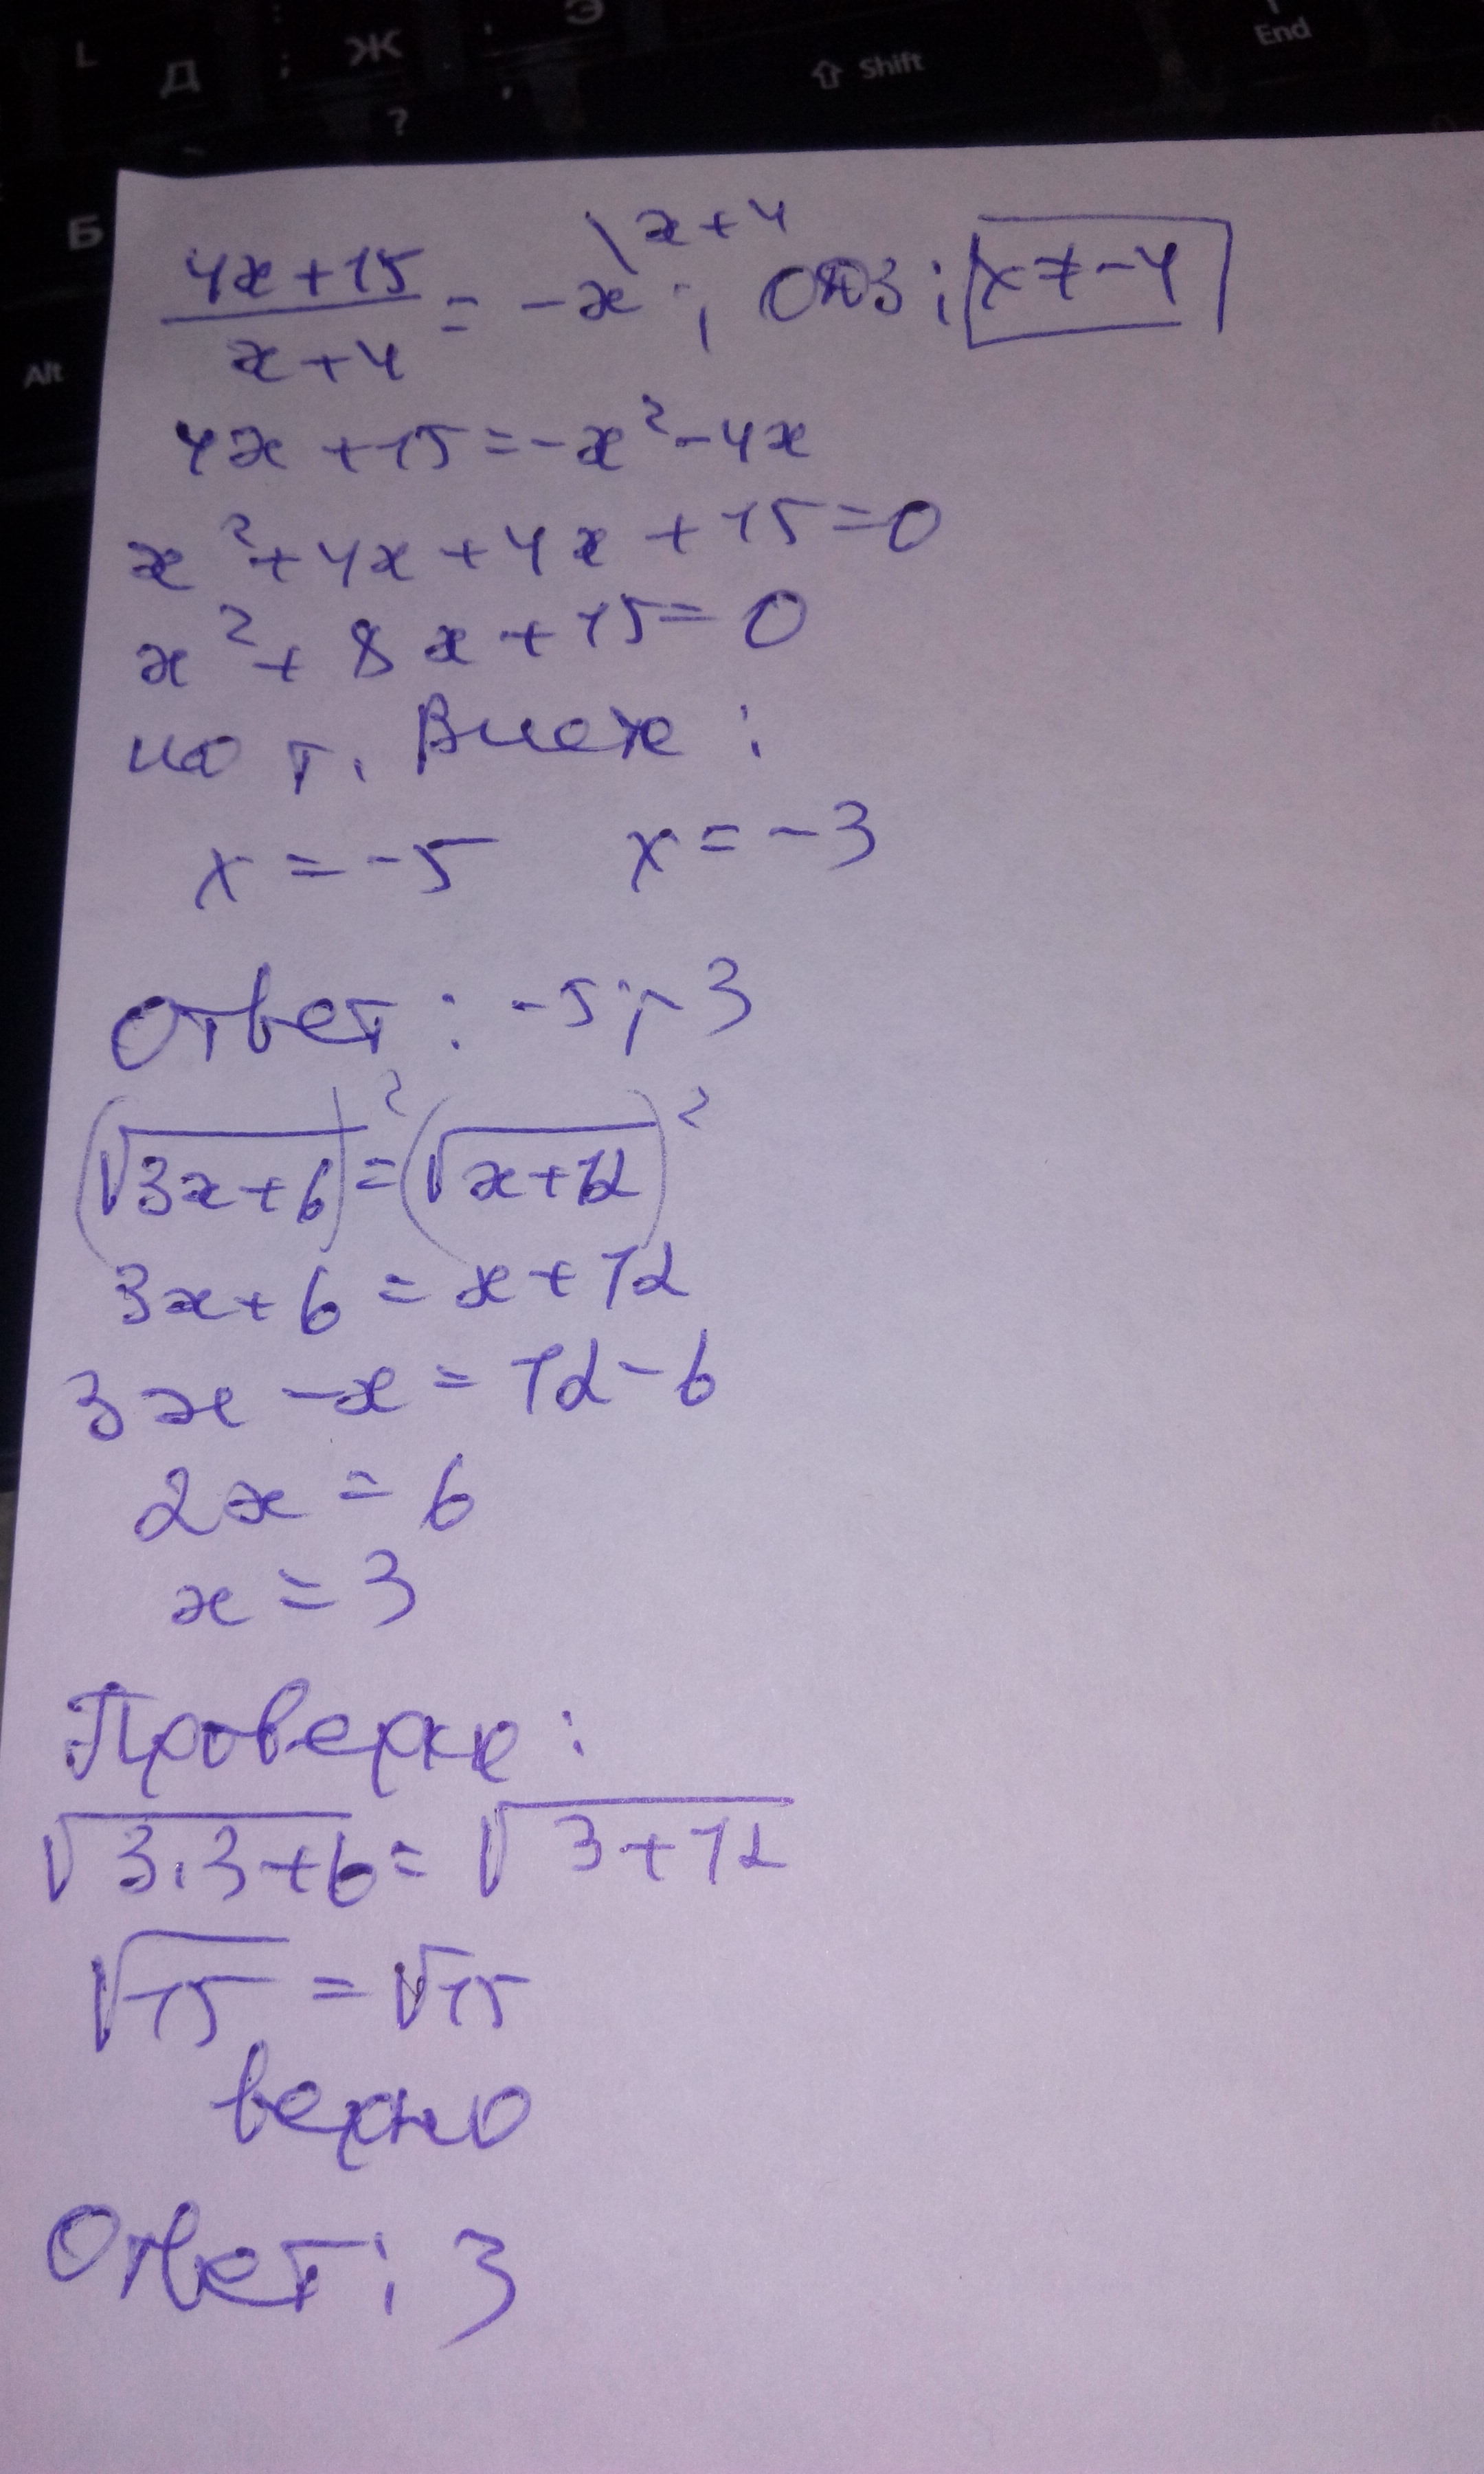 L Д ; Ж ? Э Shift End
Б
Alt
\x+4
4x+15/x+4 = -x ; ОДЗ: x≠-4
4x+15=-x²-4x
x²+4x+4x+15=0
x²+8x+15=0
по т. Виета:
x=-5 x=-3
Ответ: -5;-3
(√3x+6)²=(√x+12)²
3x+6=x+12
3x-x=12-6
2x=6
x=3
Проверка:
√3.3+6=√3+12
√15=√15
верно
Ответ: 3